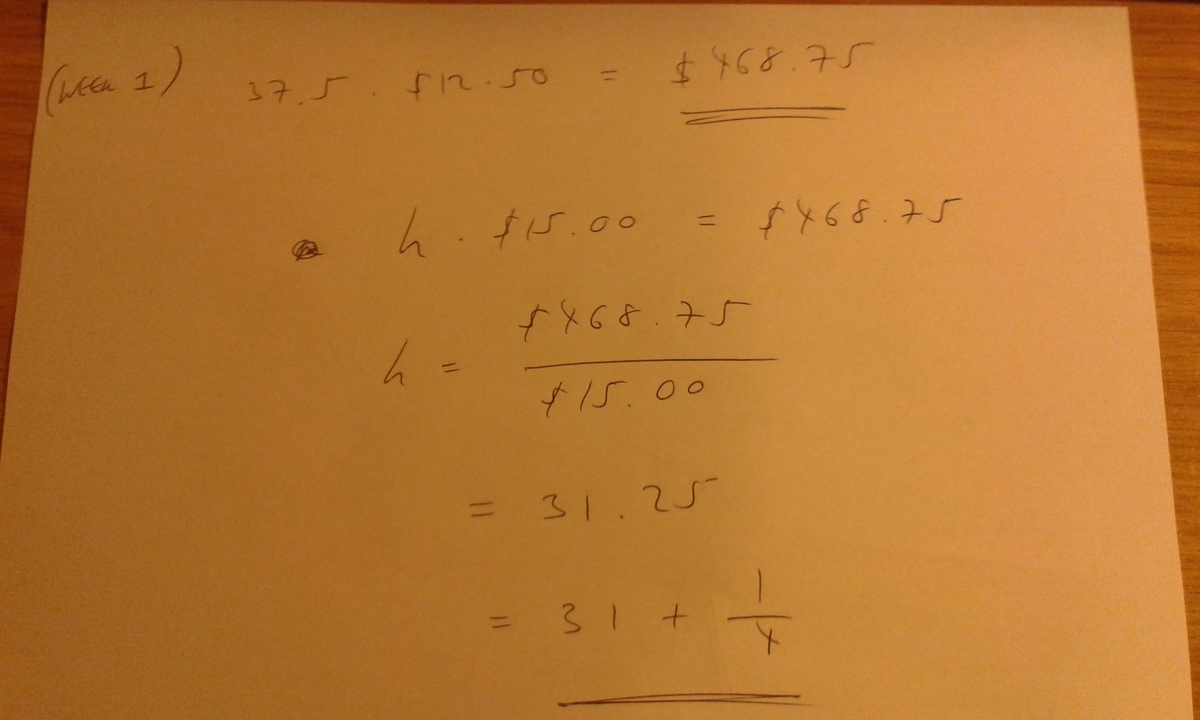 (WEEK 1) 37.5 . $12.50 = $468.75
h . $15.00 = $468.75
h = $468.75 / $15.00
= 31.25
= 31 + 1/4